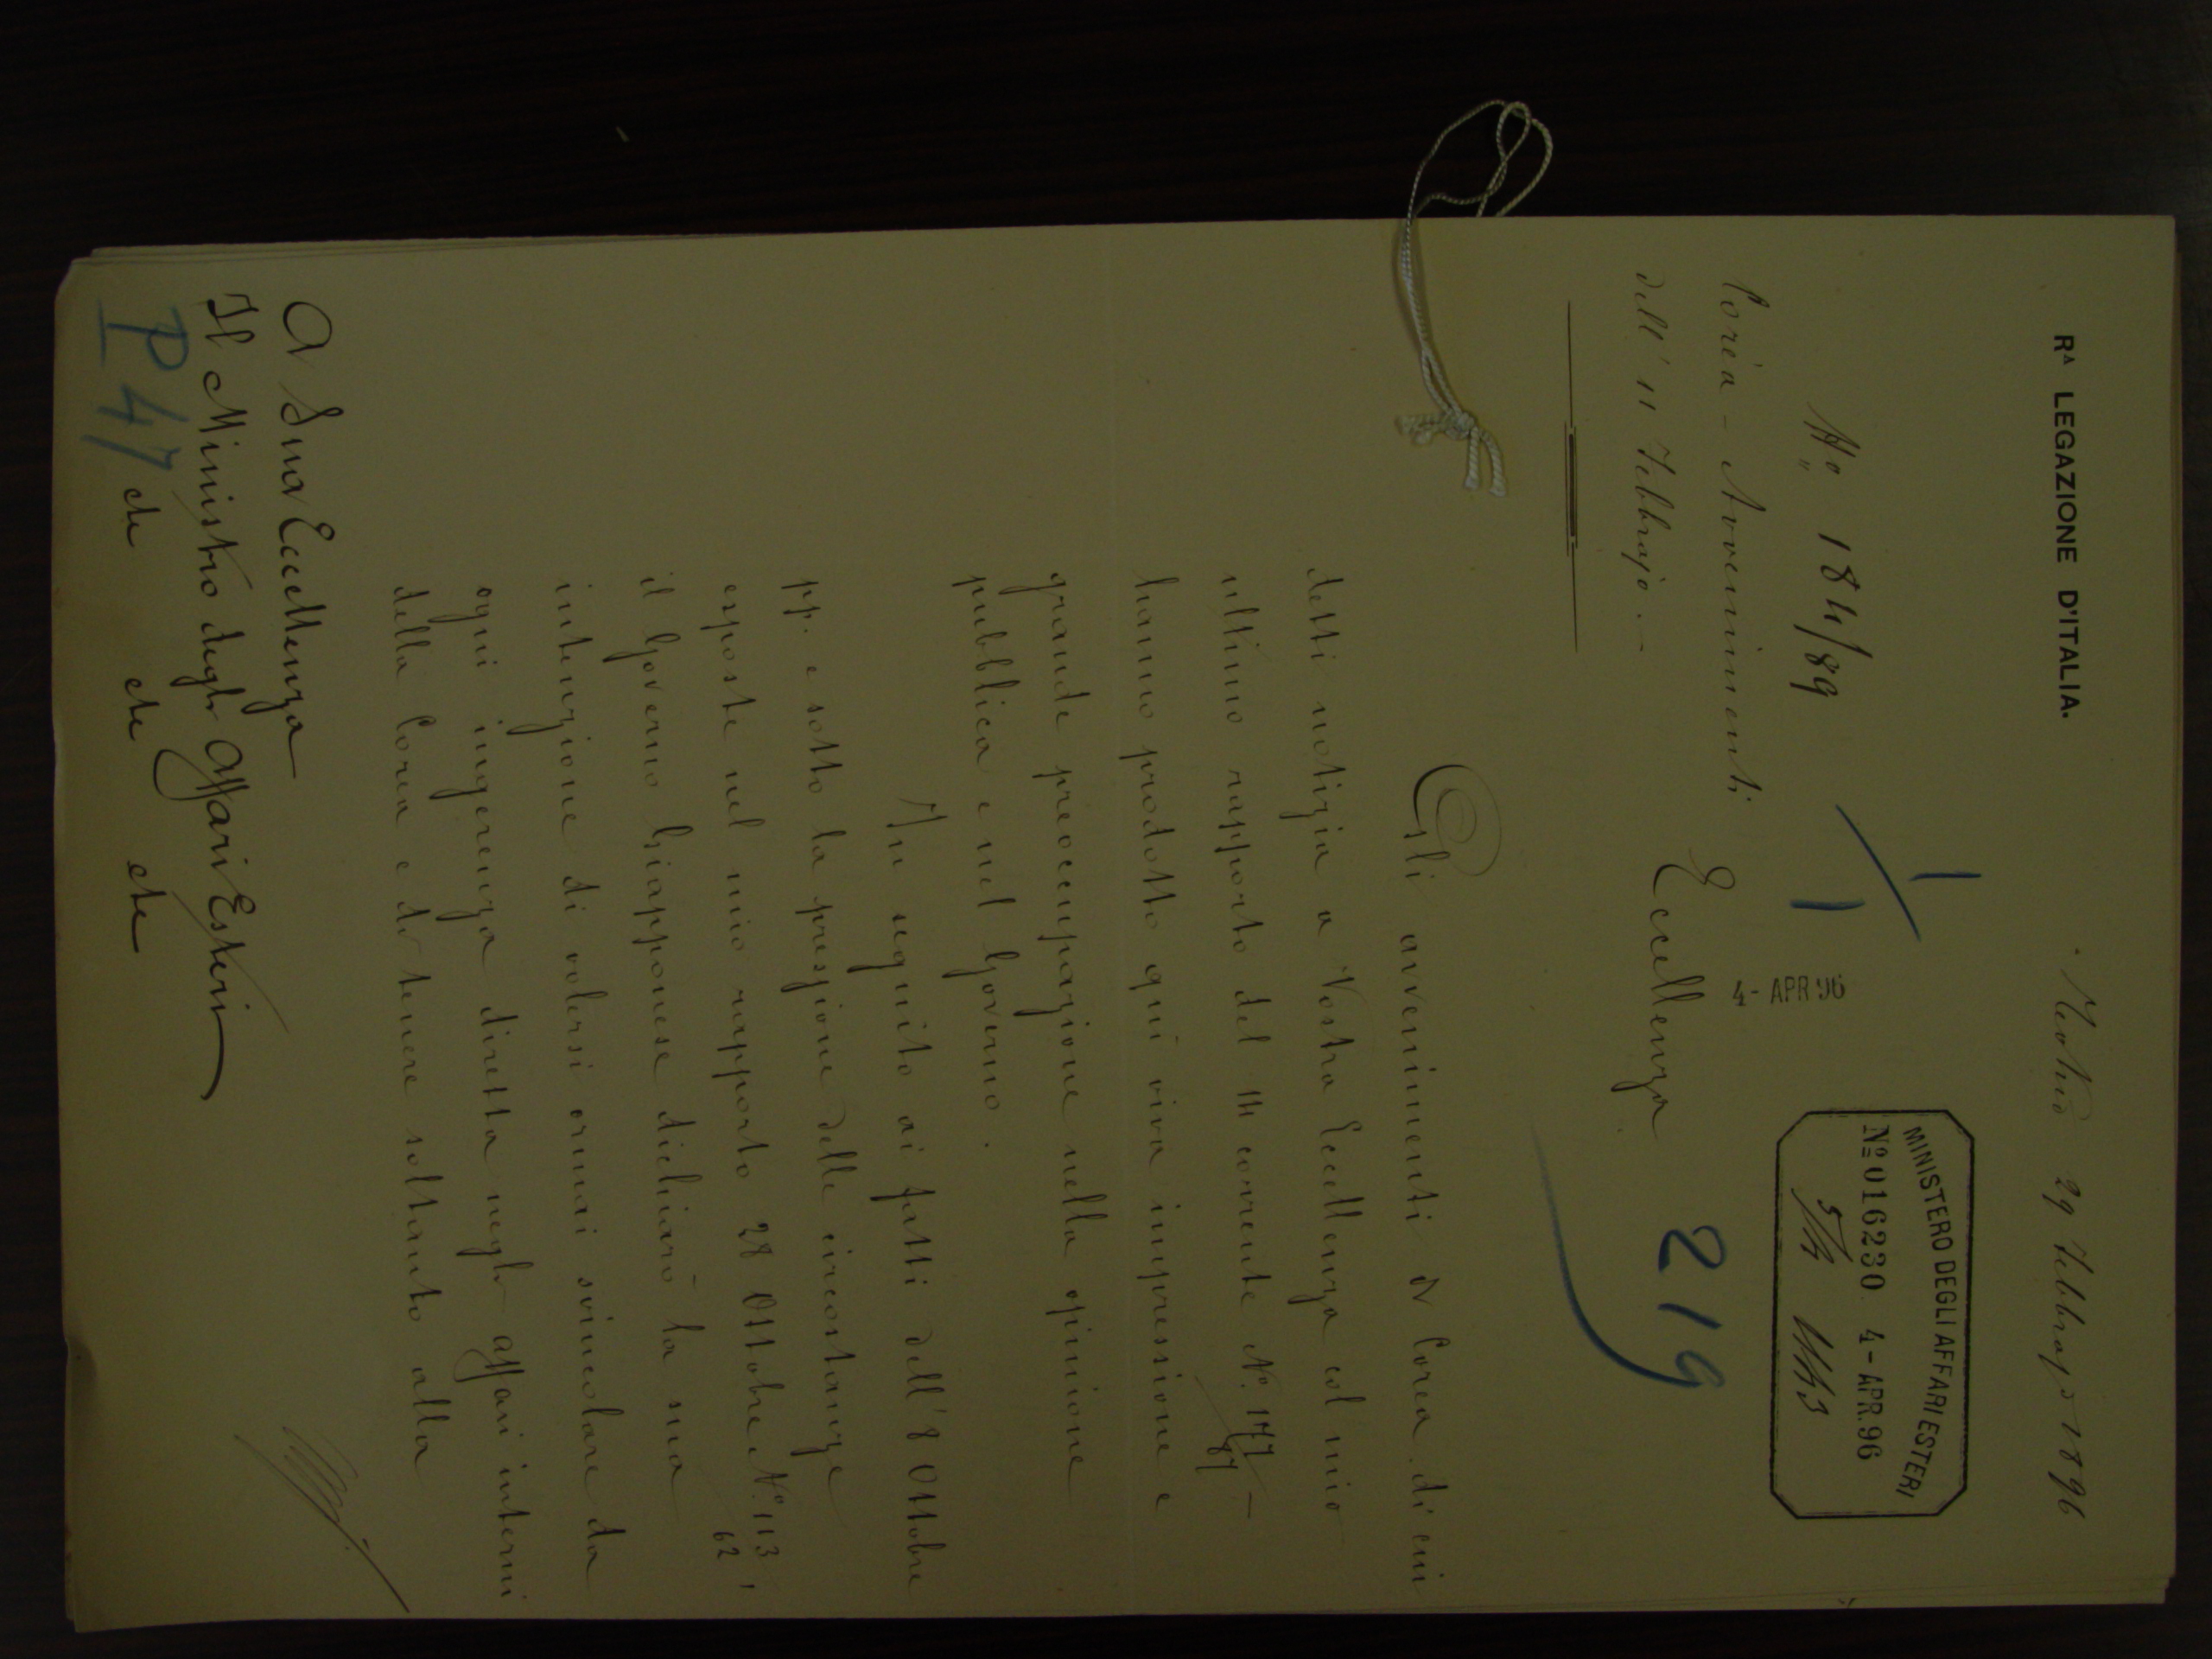 Rᴬ LEGAZIONE D'ITALIA.
29 Febbrajo 1896
MINISTERO DEGLI AFFARI ESTERI
Nº 016230 4-APR.96
Nº 184/89
4-APR 96
Corea - Avvenimenti
dell'11 Febbrajo.-
219
Eccellenza
Gli avvenimenti di Corea di cui
detti notizia a Vostra Eccellenza col mio
ultimo rapporto del 14 corrente Nº 177/87
hanno prodotto qui viva impressione e
grande preoccupazione nella opinione
pubblica e nel Governo.
In seguito ai fatti dell'8 Ottobre
pp. e sotto la pressione delle circostanze
esposte nel mio rapporto 28 Ottobre Nº 113/62,
il Governo Giapponese dichiarò la sua
intenzione di volersi ormai svincolare da
ogni ingerenza diretta negli affari interni
della Corea e di tenere soltanto alla
A Sua Eccellenza
Il Ministro degli Affari Esteri
etc etc etc
P 47